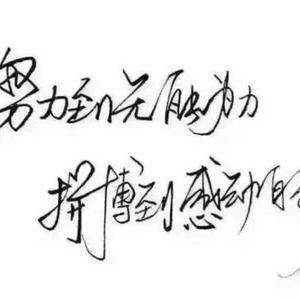 努力到无能为力
拼博到感动自